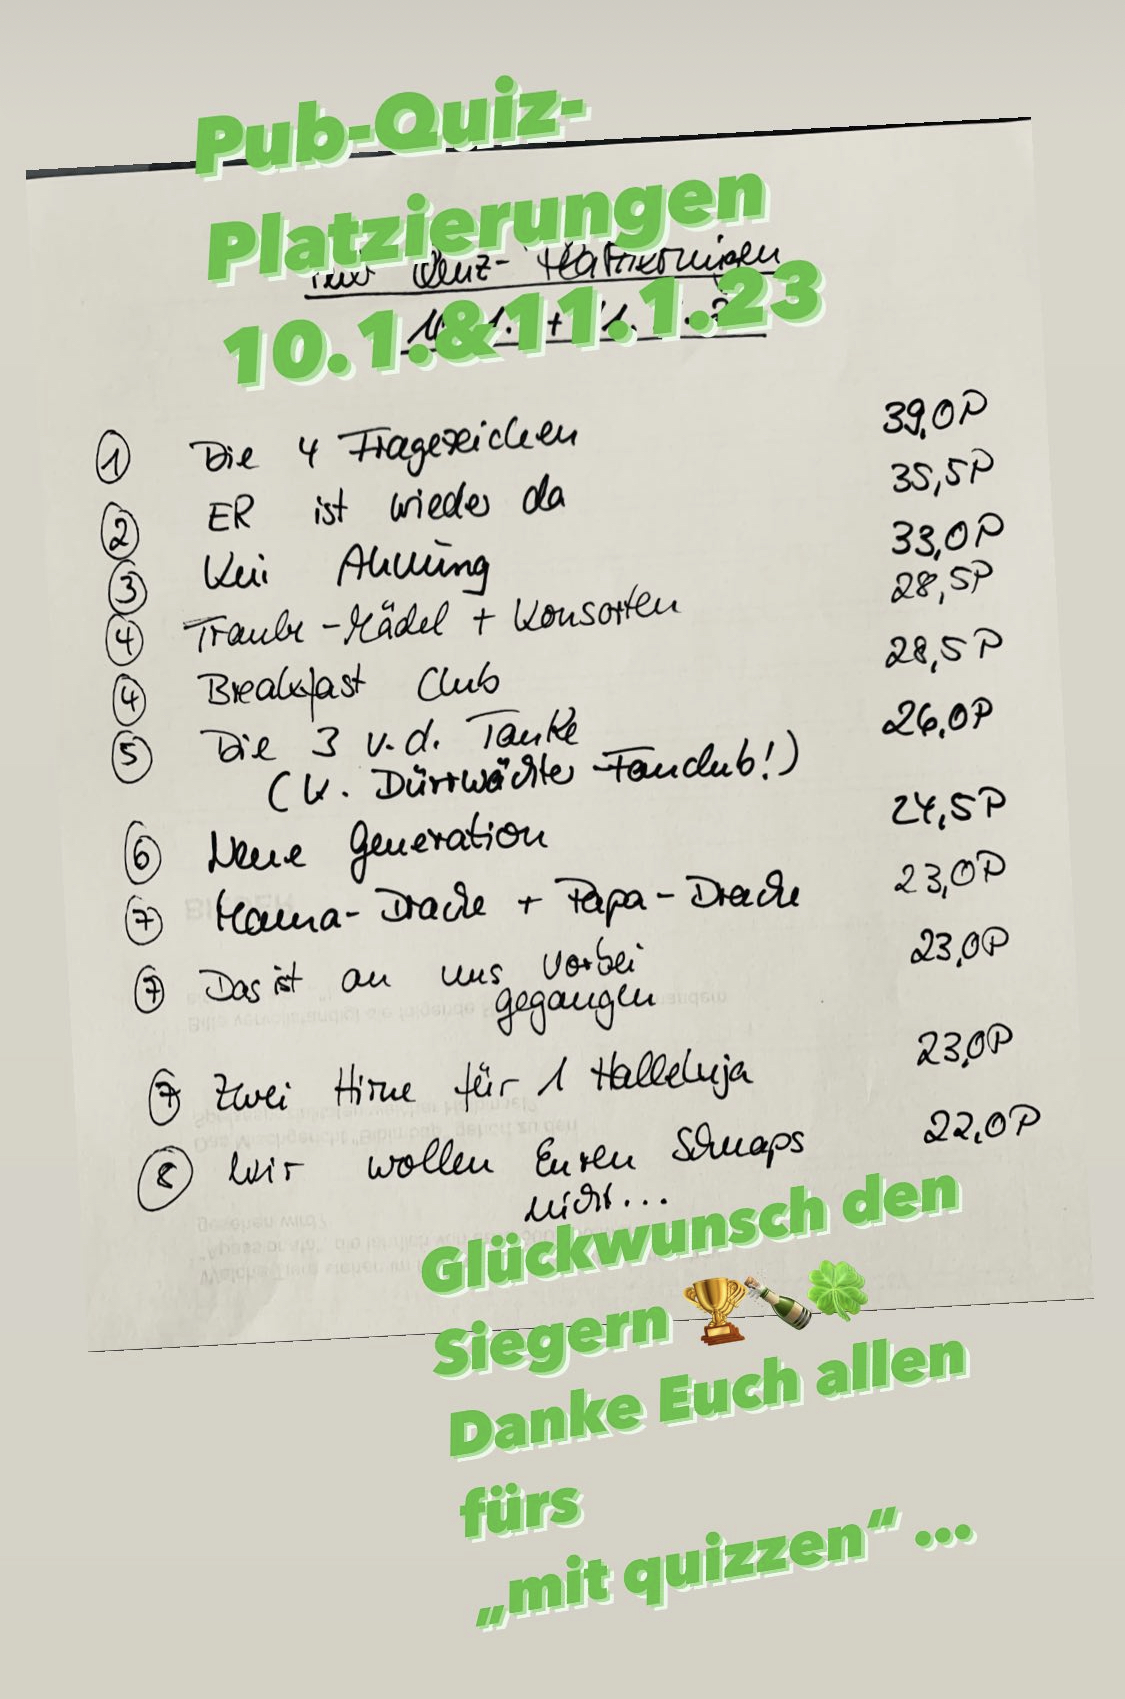 Pub-Quiz-
Platzierungen
10.1.&11.1.23
Pub Quiz-Platzierungen
① Die 4 Fragezeichen 39,0P
② ER ist wieder da 35,5P
③ Kei Ahnung 33,0P
④ Traube-Mädel + Konsorten 28,5P
④ Breakfast Club 28,5P
⑤ Die 3 v.d. Tanke 26,0P
(K. Dürrwächter-Fanclub!)
⑥ Neue Generation 24,5P
⑦ Mama-Drache + Papa-Drache 23,0P
⑦ Das ist an uns vorbei 23,0P
gegangen
⑦ Zwei Hirne für 1 Halleluja 23,0P
⑧ Wir wollen Euren Schnaps 22,0P
nicht...
Glückwunsch den
Siegern 🏆🍾🍀
Danke Euch allen
fürs
„mit quizzen“ ...